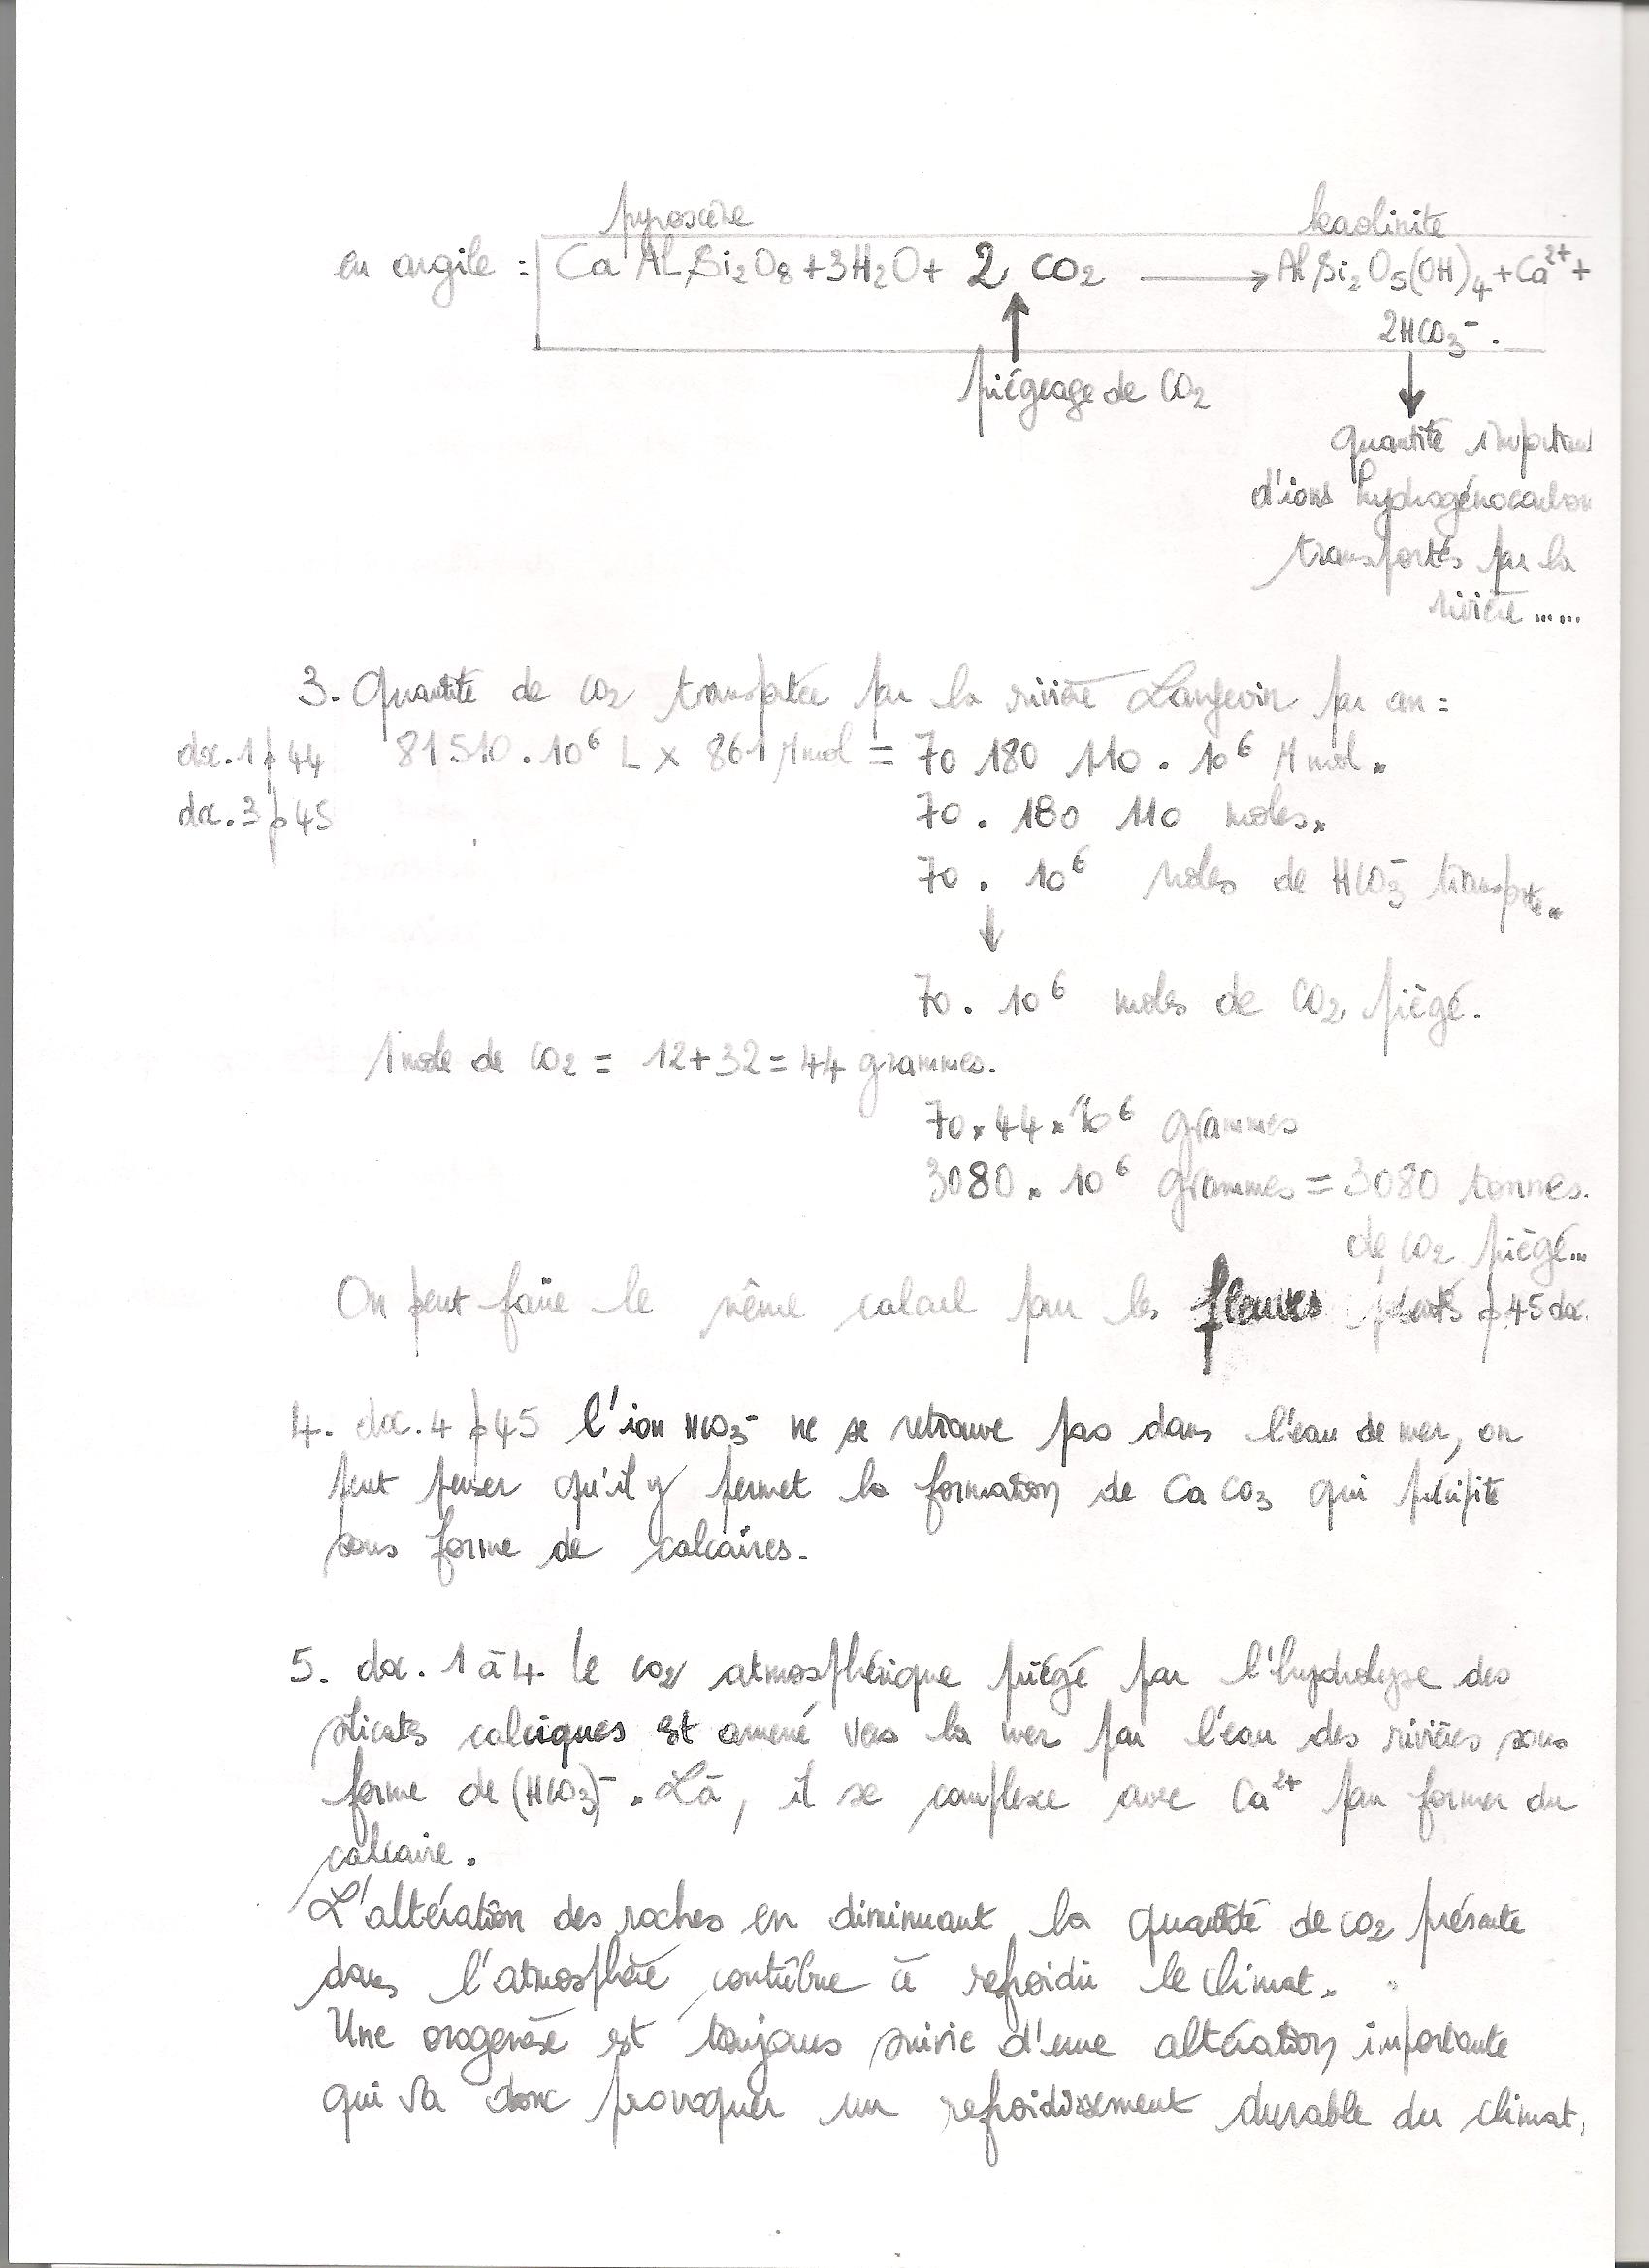 pyroxène kaolinite
en argile : CaAl₂Si₂O₈ + 3H₂O + 2 CO₂ → Al₂Si₂O₅(OH)₄ + Ca²⁺ +
2HCO₃⁻.
piégeage de CO₂
quantité important
d'ions hydrogénocarbon
transportés par la
rivière ......
3. Quantité de CO₂ transportée par la rivière Langevin par an :
doc. 1 p 44 81510 . 10⁶ L x 861 µmol = 70 180 110 . 10⁶ µmol.
doc. 3 p 45 70 . 180 110 moles.
70 . 10⁶ moles de HCO₃⁻ transporté.
↓
70 . 10⁶ moles de CO₂ piégé.
1 mole de CO₂ = 12+32 = 44 grammes.
70 x 44 x 10⁶ grammes
3080 . 10⁶ grammes = 3080 tonnes.
de CO₂ piégé...
On peut faire le même calcul pour les fleuves p 45 doc.
4. doc. 4 p 45 l'ion HCO₃⁻ ne se retrouve pas dans l'eau de mer, on
peut penser qu'il y permet la formation de CaCO₃ qui précipite
sous forme de calcaires.
5. doc. 1 à 4. le CO₂ atmosphérique piégé par l'hydrolyse des
silicates calciques est amené vers la mer par l'eau des rivières sous
forme de (HCO₃)⁻. Là, il se complexe avec Ca²⁺ pour former du
calcaire.
L'altération des roches en diminuant la quantité de CO₂ présente
dans l'atmosphère contribue à refroidir le climat.
Une orogenèse est toujours suivie d'une altération importante
qui va donc provoquer un refroidissement durable du climat,